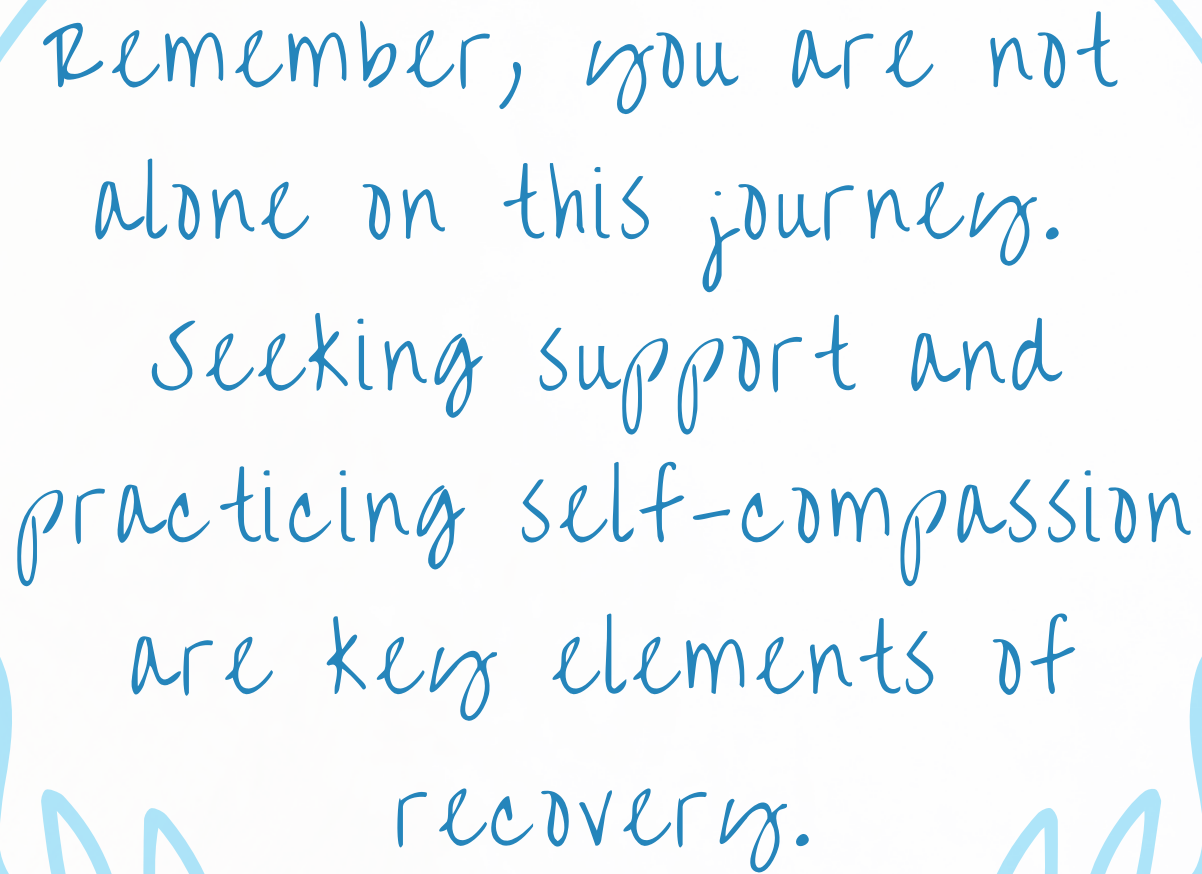 Remember, you are not
alone on this journey.
Seeking support and
practicing self-compassion
are key elements of
recovery.